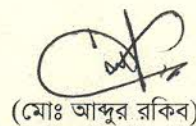 (মোঃ আব্দুর রকিব)